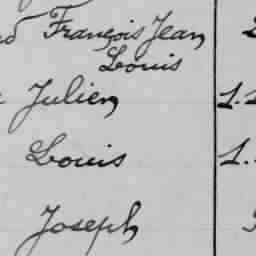 François Jean
Louis
Julien
Louis
Joseph